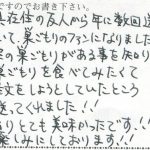 ですのでお書き下さい。
在住の友人から年に数回送
いて、巣ごもりのファンになりました
の巣ごもりがある事を知り
巣ごもりを食べてみたくて
注文をようとしていたところ
送ってくれました!!
りとても美味かったです!!
楽しみにしております!!